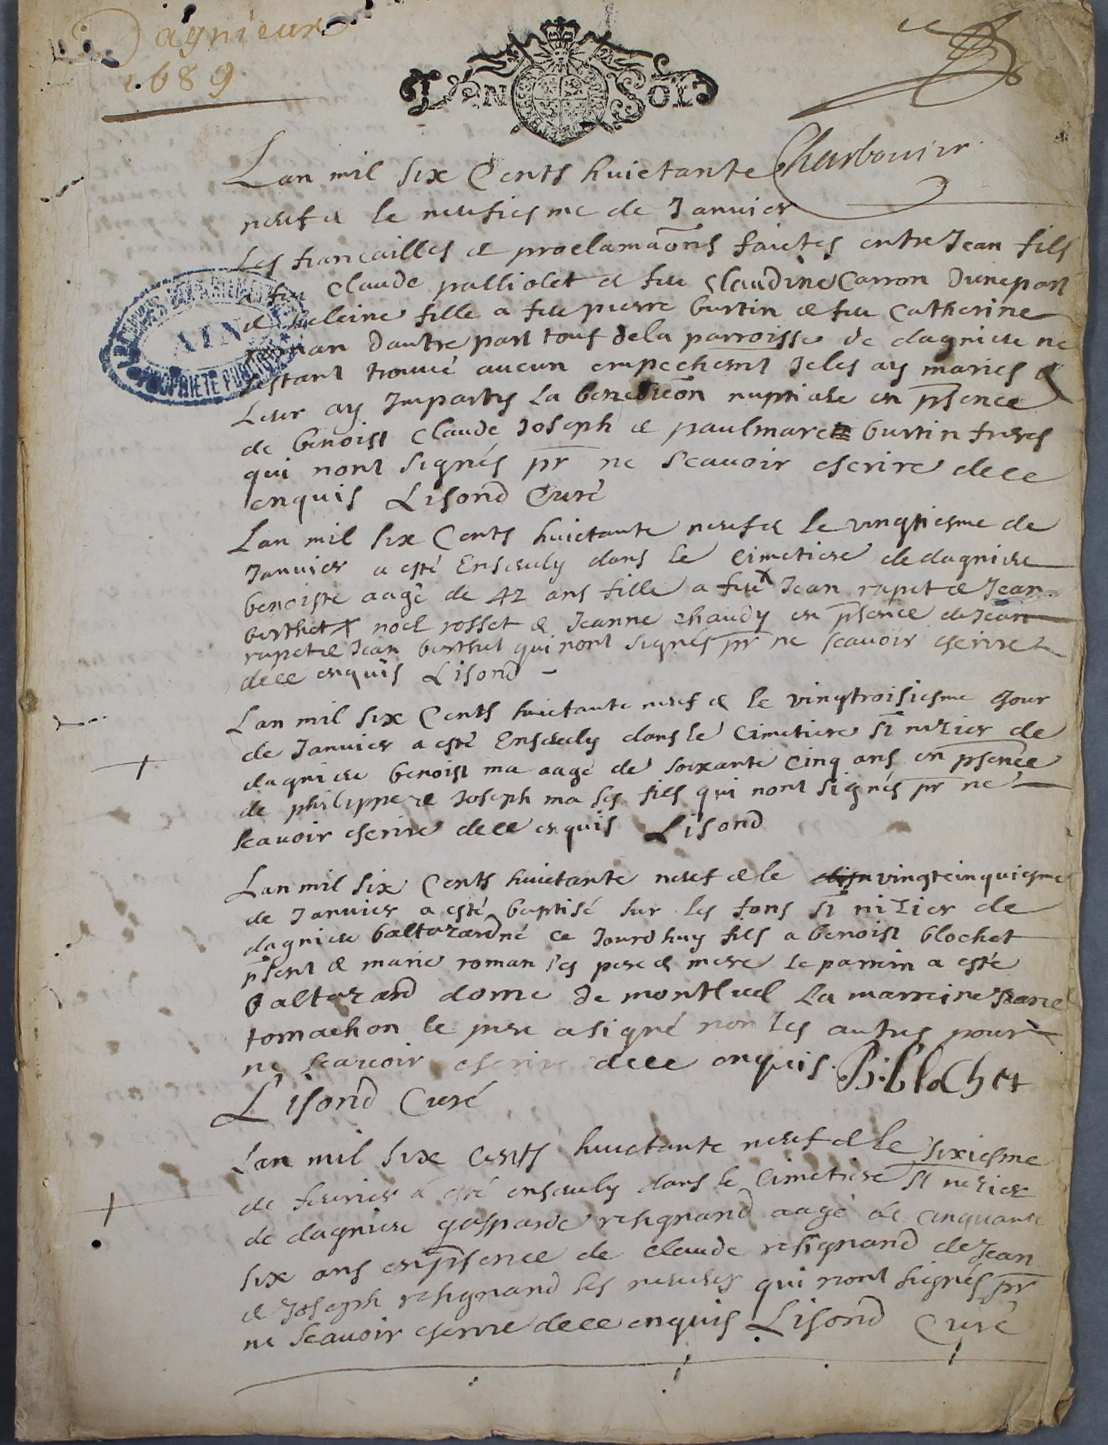 Dagnieux
1689
Un Sol
Charbonier
Lan mil six Cents huictante
neuf & le neufiesme de Janvier
Les fiancailles & proclamaons faictes entre Jean fils
a feu Claude palliolet & feu Claudine Carron dune part
& heleine fille a feu pierre burtin & feu Catherine
dautre part touts de la parroisse de dagnieu ne
sestant trouvé aucun empechemt Je les ay mariés &
Leur ay Impartys La benediction nuptiale en psence
de benoist Claude Joseph & paulmarc burtin freres
qui nont signés pr ne Scavoir escrire de ce
enquis Lisond Curé
Lan mil six Cents huictante neuf & le vingtiesme de
Janvier a esté Ensevely dans le Cimetiere de dagnieu
benoiste aagé de 42 ans fille a feu x Jean rapet & Jean
berthet x noel rosset & Jeanne chaudy en psence de Jean
rapet & Jean berthet qui nont signés pr ne scavoir escrire
de ce enquis Lisond
Lan mil six Cents huictante neuf & le vingtroisiesme Jour
de Janvier a esté Ensevely dans le Cimetiere st nizier de
dagnieu benoist ma aagé de soixante Cinq ans en psence
de philippe & Joseph ma ses fils qui nont signés pr ne
scavoir escrire de ce enquis Lisond
Lan mil six Cents huictante neuf & le vingtcinquiesme
de Janvier a esté baptisé sur les fons st nizier de
dagnieu baltazard né ce Jourdhuy fils a benoist blochet
psent & marie roman ses pere & mere le parrein a esté
baltazard dome de montluel La marreine
tomachon le pere a signé non les autres pour
ne scavoir escrire de ce enquis. B. blochet
Lisond Curé
Lan mil six Cents huictante neuf & le sixiesme
de fevrier a esté ensevely dans le Cimetiere st nizier
de dagnieu gasparde resignand aagé de cinquante
six ans en psence de Claude resignand de Jean
& Joseph resignand ses neveux qui nont signés pr
ne scavoir escrire de ce enquis Lisond Curé
AIN
PROPRIETE PUBLIQUE